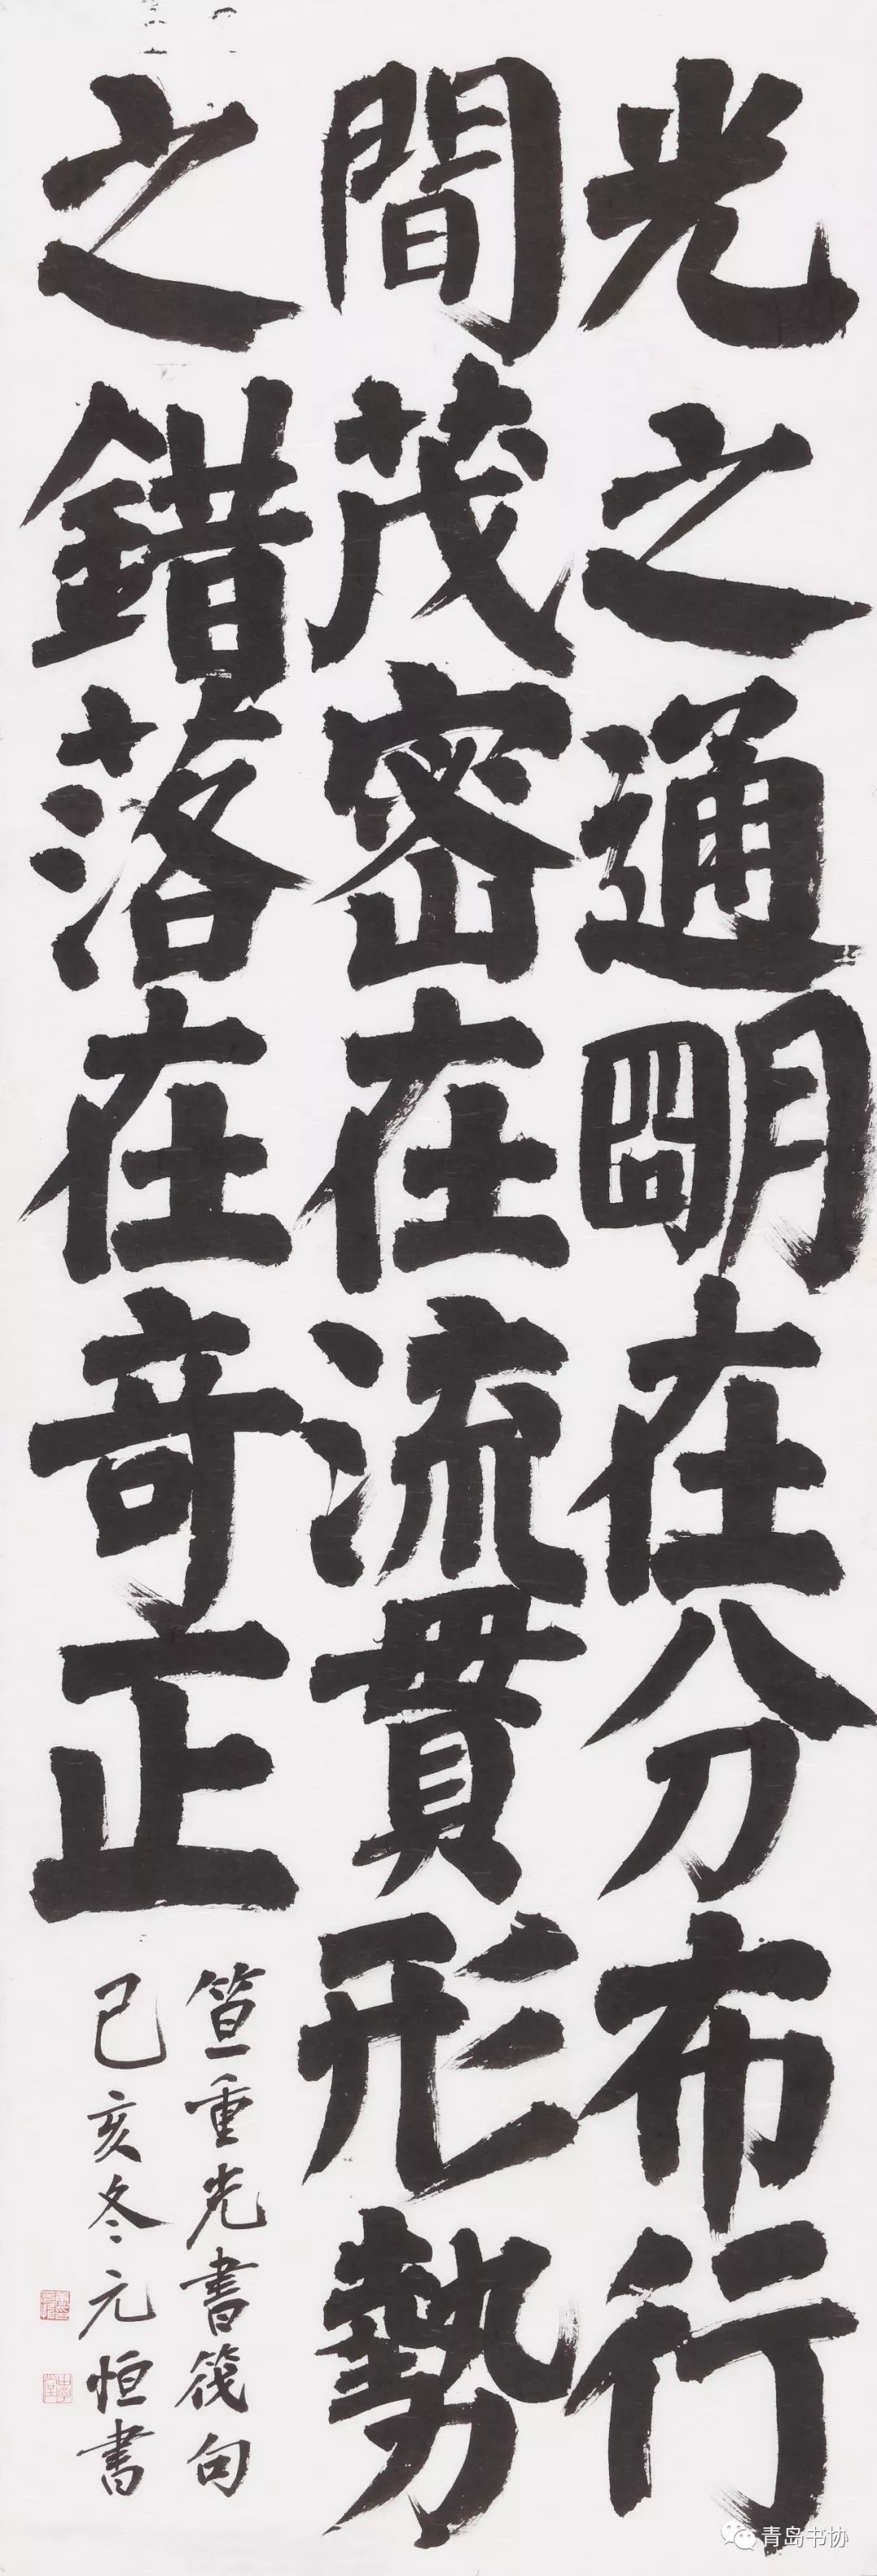 光之通朙在分布行
間茂密在流貫形勢
之錯落在奇正
笪重光書筏句
己亥冬元恒書
青岛书协